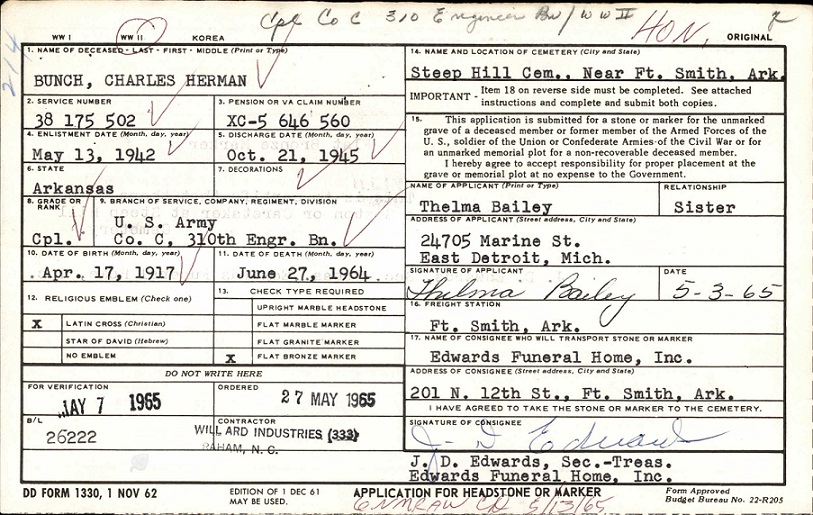 Cpl Co C 310 Engineer Bn/ WW II
HON,
WW I WW II KOREA ORIGINAL
214
1. NAME OF DECEASED - LAST - FIRST - MIDDLE (Print or Type)
BUNCH, CHARLES HERMAN
2. SERVICE NUMBER
38 175 502
3. PENSION OR VA CLAIM NUMBER
XC-5 646 560
4. ENLISTMENT DATE (Month, day, year)
May 13, 1942
5. DISCHARGE DATE (Month, day, year)
Oct. 21, 1945
6. STATE
Arkansas
7. DECORATIONS
8. GRADE OR RANK
Cpl.
9. BRANCH OF SERVICE, COMPANY, REGIMENT, DIVISION
U. S. Army
Co. C, 310th Engr. Bn.
10. DATE OF BIRTH (Month, day, year)
Apr. 17, 1917
11. DATE OF DEATH (Month, day, year)
June 27, 1964
12. RELIGIOUS EMBLEM (Check one)
X LATIN CROSS (Christian)
STAR OF DAVID (Hebrew)
NO EMBLEM
13. CHECK TYPE REQUIRED
UPRIGHT MARBLE HEADSTONE
FLAT MARBLE MARKER
FLAT GRANITE MARKER
X FLAT BRONZE MARKER
DO NOT WRITE HERE
FOR VERIFICATION
MAY 7 1965
ORDERED
27 MAY 1965
B/L
26222
CONTRACTOR
WILLARD INDUSTRIES (333)
N. C.
14. NAME AND LOCATION OF CEMETERY (City and State)
Steep Hill Cem., Near Ft. Smith, Ark.
IMPORTANT - Item 18 on reverse side must be completed. See attached
instructions and complete and submit both copies.
15. This application is submitted for a stone or marker for the unmarked
grave of a deceased member or former member of the Armed Forces of the
U. S., soldier of the Union or Confederate Armies of the Civil War or for
an unmarked memorial plot for a non-recoverable deceased member.
I hereby agree to accept responsibility for proper placement at the
grave or memorial plot at no expense to the Government.
NAME OF APPLICANT (Print or Type)
Thelma Bailey
RELATIONSHIP
Sister
ADDRESS OF APPLICANT (Street address, City and State)
24705 Marine St.
East Detroit, Mich.
SIGNATURE OF APPLICANT
Thelma Bailey
DATE
5-3-65
16. FREIGHT STATION
Ft. Smith, Ark.
17. NAME OF CONSIGNEE WHO WILL TRANSPORT STONE OR MARKER
Edwards Funeral Home, Inc.
ADDRESS OF CONSIGNEE (Street address, City and State)
201 N. 12th St., Ft. Smith, Ark.
I HAVE AGREED TO TAKE THE STONE OR MARKER TO THE CEMETERY.
SIGNATURE OF CONSIGNEE
J. D. Edwards
J. D. Edwards, Sec.-Treas.
Edwards Funeral Home, Inc.
DD FORM 1330, 1 NOV 62
EDITION OF 1 DEC 61
MAY BE USED.
APPLICATION FOR HEADSTONE OR MARKER
Form Approved
Budget Bureau No. 22-R205
5/13/65